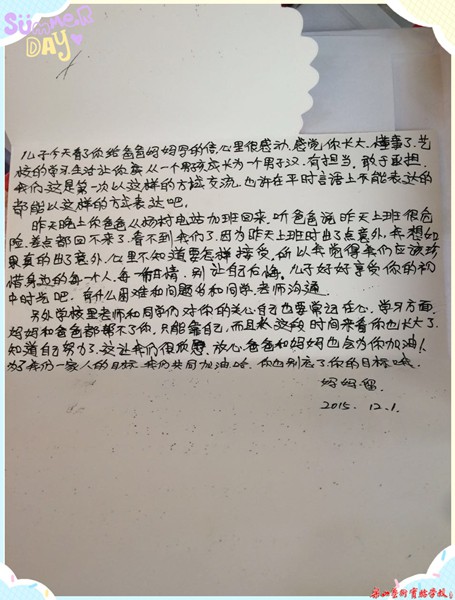 SummeR
DAY
儿子今天看了你给爸爸妈妈写的信,心里很感动,感觉你长大、懂事了,艺
校的学习生活让你真从一个男孩成长为一个男子汉,有担当,敢于承担,
我们这是第一次以这样的方式交流,也许在平时言语上不能表达的
都能以这样的方式表达吧。
昨天晚上你爸爸从杨村电站加班回来,听爸爸说昨天上班很危
险,差点都回不来了,看不到我们了,因为昨天上班时出了点意外,我想如
果真的出了意外,心里不知道要怎样接受,所以我觉得我们应该珍
惜身边的每一个人,每一份事情,别让自己后悔。儿子好好享受你的初
中时光吧,有什么困难和问题多和同学、老师沟通。
另外学校里老师和同学们对你的关心自己也要常记在心,学习方面,
妈妈和爸爸都帮不了你,只能靠自己,而且从这段时间来看你也长大了,
知道自己努力了,这让我们很欣慰,放心,爸爸和妈妈也会为你加油!
为了我们一家人的目标,我们共同加油哈,你也别忘了你的目标哦。
妈妈
2015. 12.1.
艺术实验学校